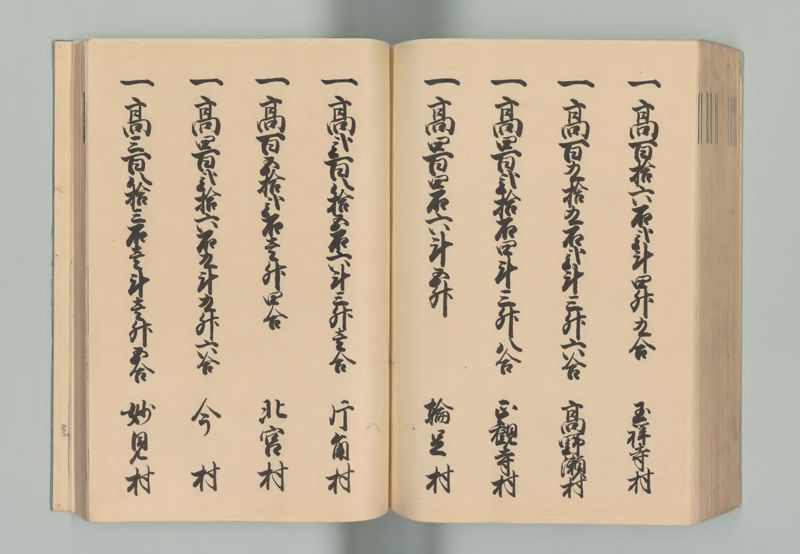 一高百拾六石弐斗四升九合 玉祥寺村
一高百九拾九石弐斗三升六合 高野瀬村
一高四百弐拾石四斗三升八合 正観寺村
一高四百四石六斗五升 輪足村
一高弐百八拾五石六斗三升壱合 片角村
一高百五拾弐石壱升四合 北宮村
一高四百弐拾六石九斗九升六合 今村
一高三百八拾三石壱斗壱升五合 妙見村